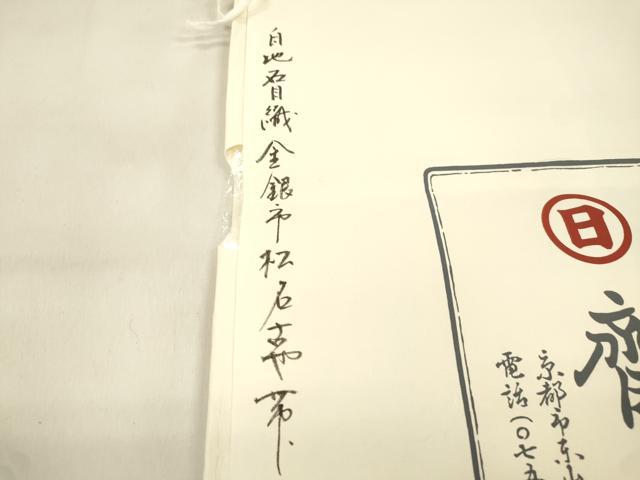 白地織金銀市松名古や帯
日
京都市東山
電話(〇七五